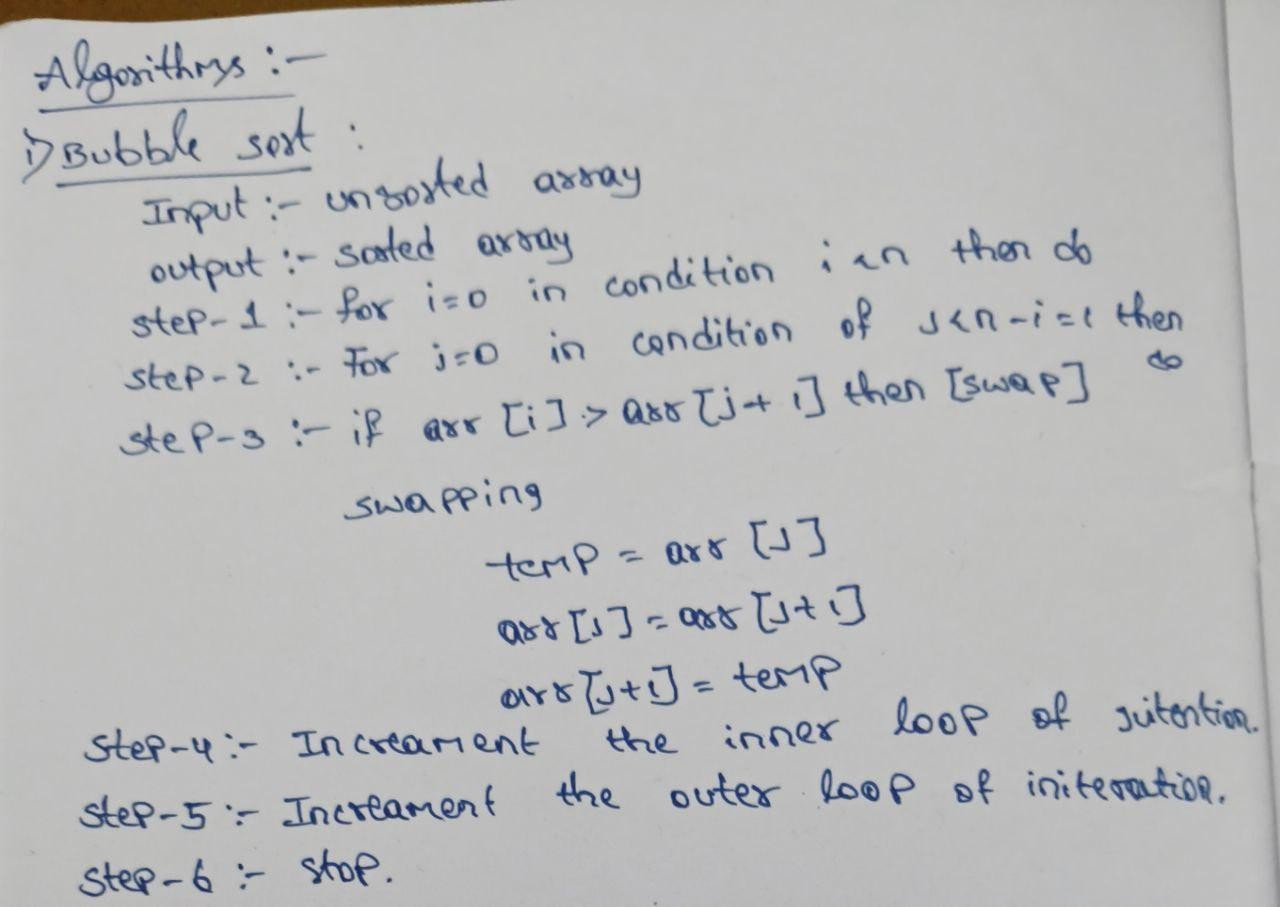 Algorithms :-
1) Bubble sort :
Input :- unsorted array
output :- sorted array
step-1 :- for i=0 in condition i<n then do
step-2 :- For j=0 in condition of j<n-i=1 then do
step-3 :- if arr [i] > arr [j+1] then [swap]
swapping
temp = arr [J]
arr [J] = arr [J+1]
arr [J+1] = temp
step-4 :- Increament the inner loop of
step-5 :- Increament the outer loop of initeration.
step-6 :- stop.